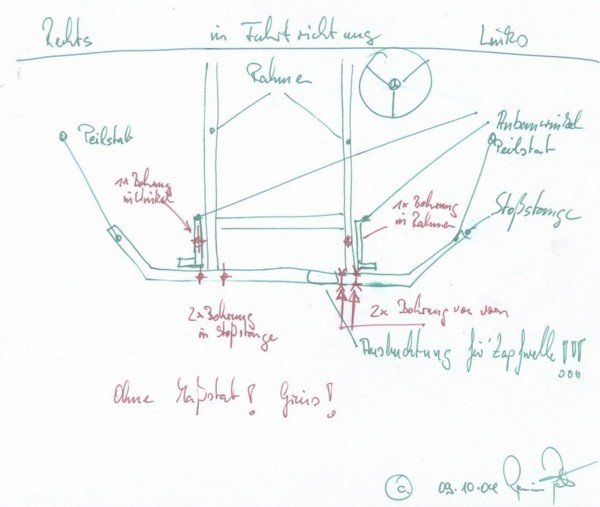 Rechts in Fahrtrichtung Links
Rahmen
Peilstab
Anbauwinkel
Peilstab
1x Bohrung
in Winkel
1x Bohrung
in Rahmen
Stoßstange
2x Bohrung
in Stoßstange
2x Bohrung von vorn
Ausbuchtung für Zapfwelle !!!
Ohne Maßstab! Gruß!
c. 09.10.04